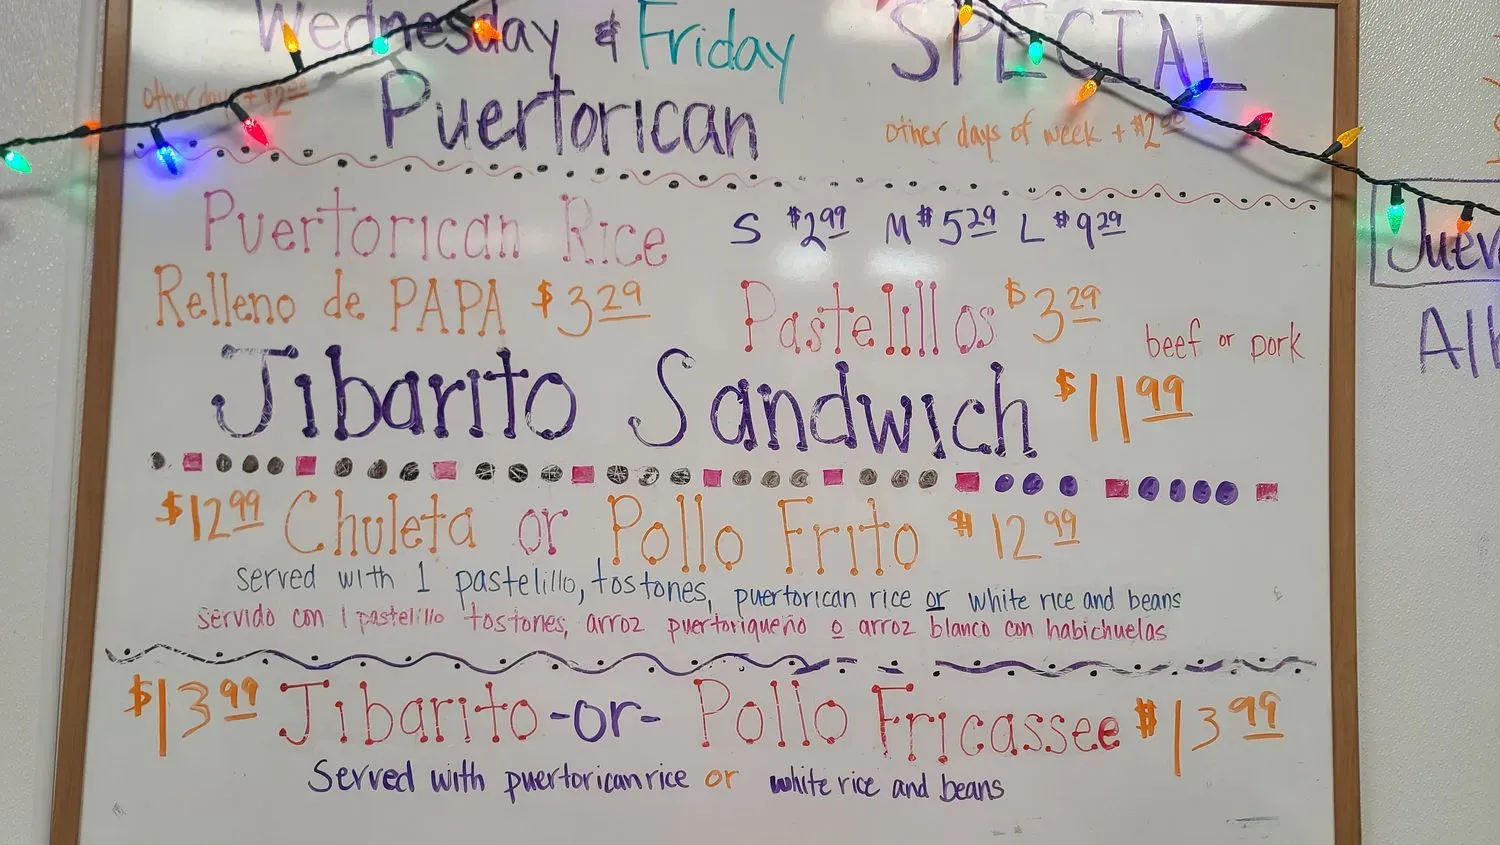 Wednesday & Friday SPECIAL
other days + $2.00
Puertorican
other days of week + $2.00
Puertorican Rice S $2.99 M $5.29 L $9.29
Relleno de PAPA $3.29 Pastelillos $3.29 beef or pork
Jibarito Sandwich $11.99
$12.99 Chuleta or Pollo Frito $12.99
served with 1 pastelillo, tostones, puertorican rice or white rice and beans
servido con 1 pastelillo tostones, arroz puertoriqueño o arroz blanco con habichuelas
$13.99 Jibarito -or- Pollo Fricassee $13.99
Served with puertorican rice or white rice and beans